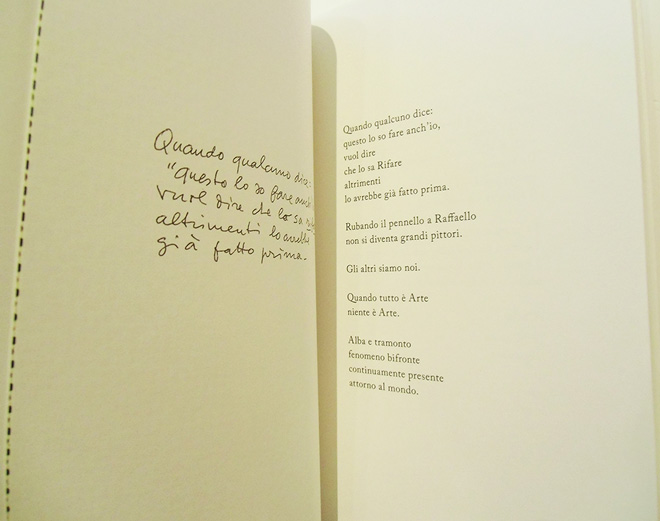 Quando qualcuno dice:
"questo lo so fare
vuol dire che lo sa
altrimenti lo avrebbe
già fatto prima.
Quando qualcuno dice:
questo lo so fare anch'io,
vuol dire
che lo sa Rifare
altrimenti
lo avrebbe già fatto prima.
Rubando il pennello a Raffaello
non si diventa grandi pittori.
Gli altri siamo noi.
Quando tutto è Arte
niente è Arte.
Alba e tramonto
fenomeno bifronte
continuamente presente
attorno al mondo.